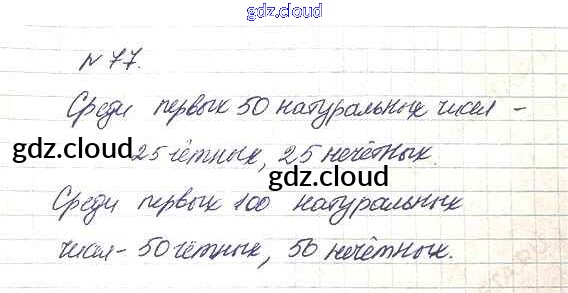 gdz.cloud
№ 77.
Среди первых 50 натуральных чисел -
gdz.cloud
25 чётных, 25 нечётных.
gdz.cloud
Среди первых 100 натуральных
чисел - 50 чётных, 50 нечётных.